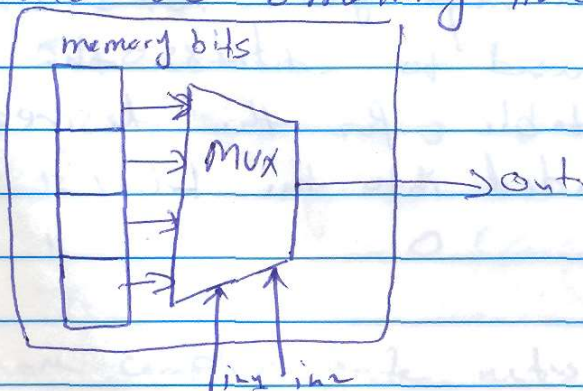 memory bits
MUX
Out
in1 in2